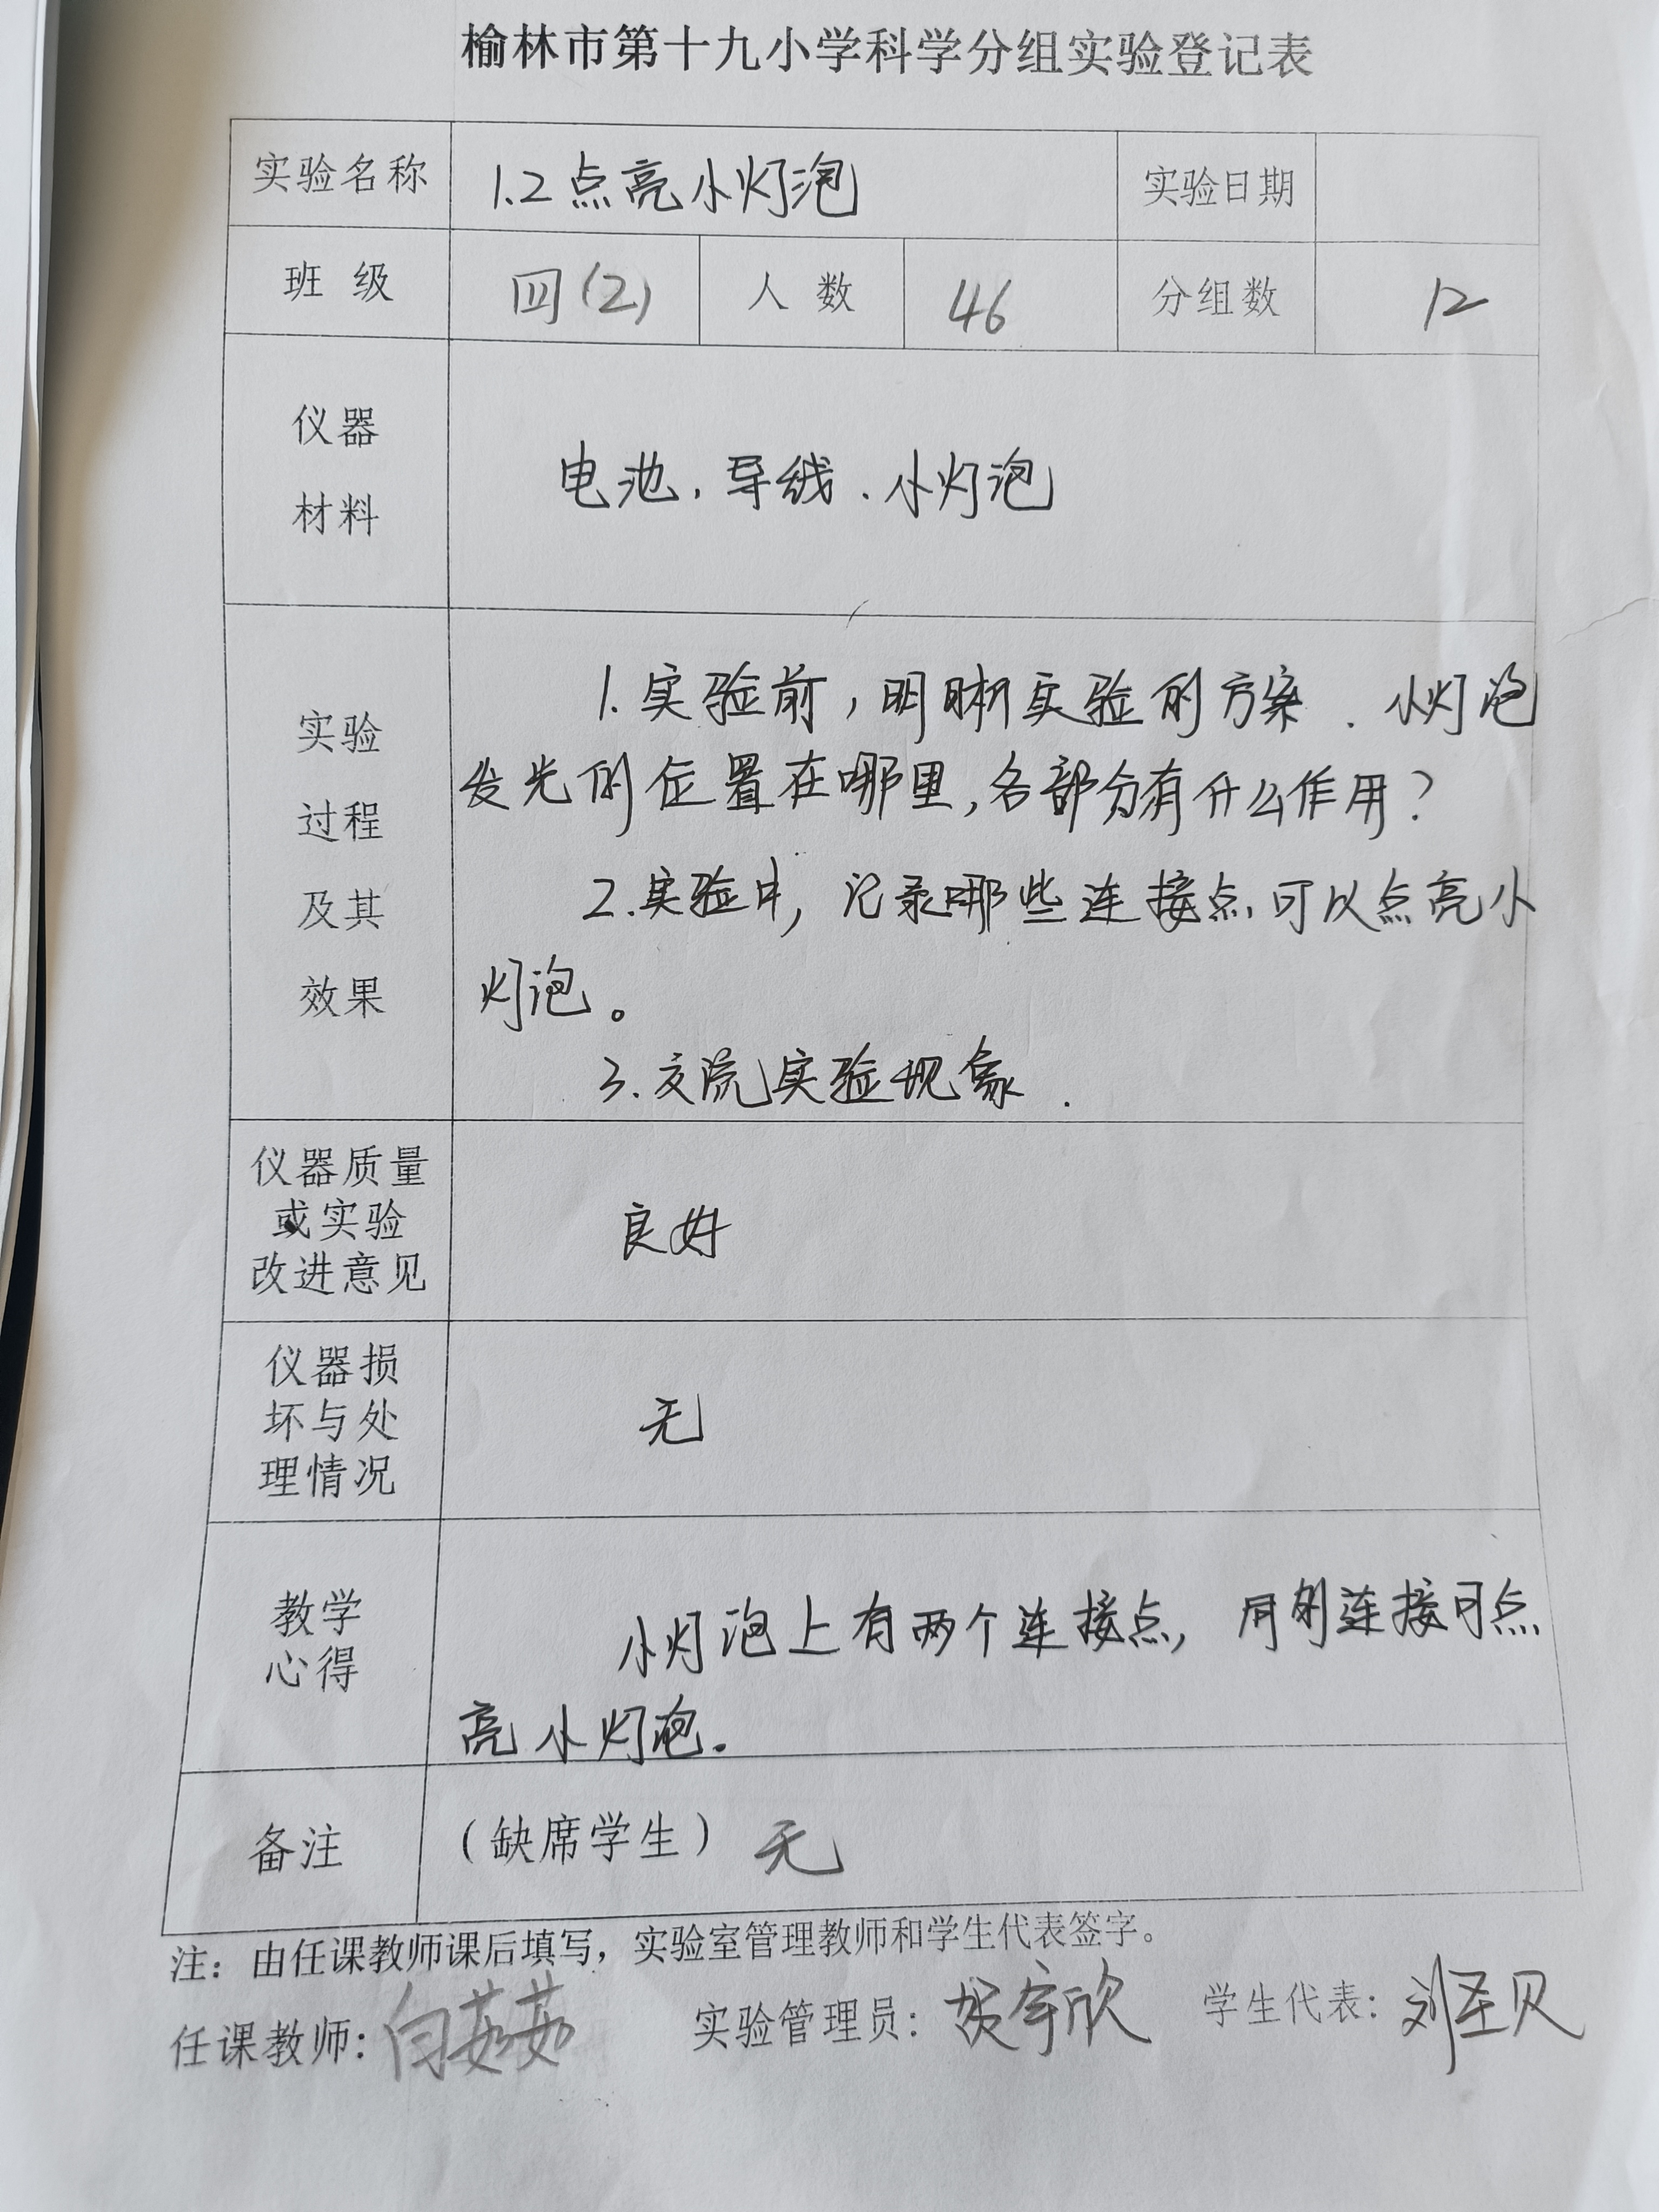 榆林市第十九小学科学分组实验登记表
实验名称 1.2点亮小灯泡 实验日期
班 级 四(2) 人 数 46 分组数 12
仪器
材料
电池、导线、小灯泡
实验
过程
及其
效果
1.实验前,明晰实验的方案.小灯泡
发光的位置在哪里,各部分有什么作用?
2.实验中,记录哪些连接点,可以点亮小
灯泡。
3.交流实验现象.
仪器质量
或实验
改进意见
良好
仪器损
坏与处
理情况
无
教学
心得
小灯泡上有两个连接点,用连接可点
亮小灯泡.
备注 (缺席学生) 无
注:由任课教师课后填写,实验室管理教师和学生代表签字。
任课教师:白茹茹 实验管理员:贺宇欣 学生代表:刘圣贝